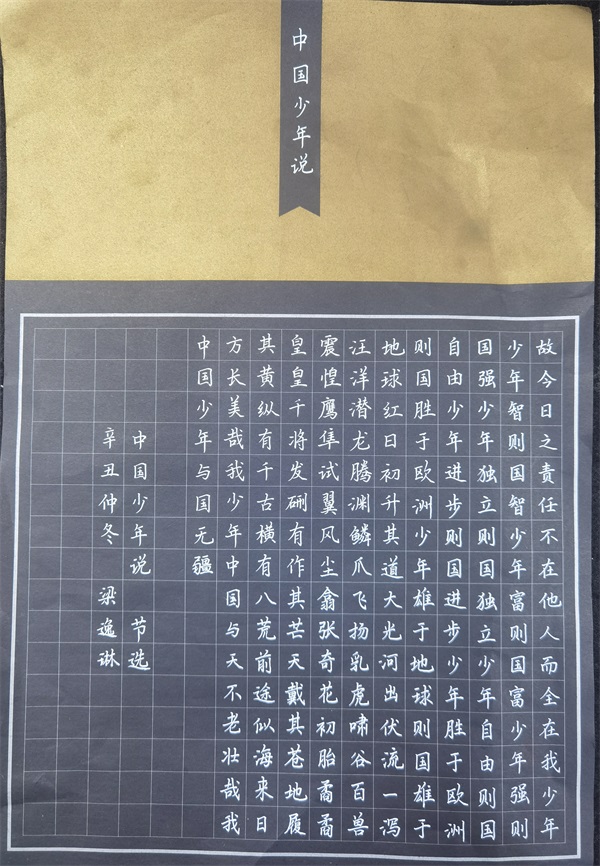 中国少年说
故今日之责任不在他人而全在我少年
少年智则国智少年富则国富少年强则
国强少年独立则国独立少年自由则国
自由少年进步则国进步少年胜于欧洲
则国胜于欧洲少年雄于地球则国雄于
地球红日初升其道大光河出伏流一泻
汪洋潜龙腾渊鳞爪飞扬乳虎啸谷百兽
震惶鹰隼试翼风尘翕张奇花初胎矞矞
皇皇千将发硎有作其芒天戴其苍地履
其黄纵有千古横有八荒前途似海来日
方长美哉我少年中国与天不老壮哉我
中国少年与国无疆
中国少年说 节选
辛丑仲冬 梁逸琳